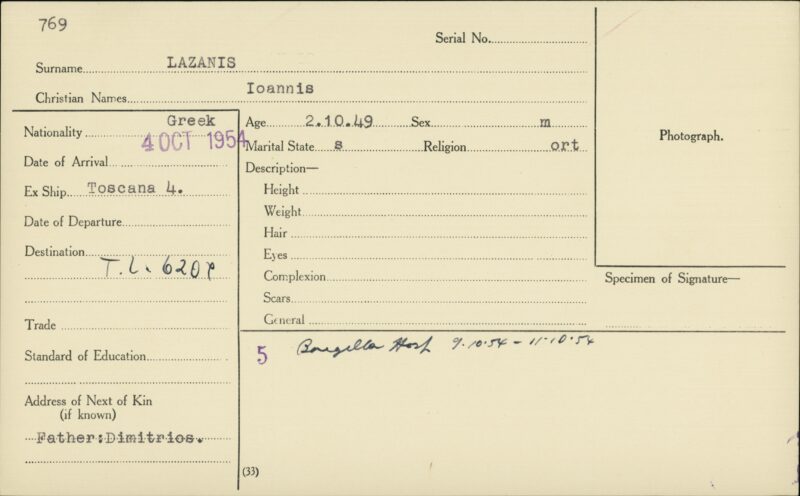 769
Serial No.
Surname LAZANIS
Christian Names Ioannis
Nationality Greek
Age 2.10.49 Sex m
4 OCT 1954
Marital State s Religion ort
Photograph.
Date of Arrival
Description—
Ex Ship Toscana 4.
Height
Weight
Date of Departure
Hair
Destination
Eyes
T.L. 620
Complexion
Specimen of Signature—
Scars
General
Trade
5 Hosp 9.10.54 - 11.10.54
Standard of Education
Address of Next of Kin
(if known)
Father:Dimitrios.
(33)